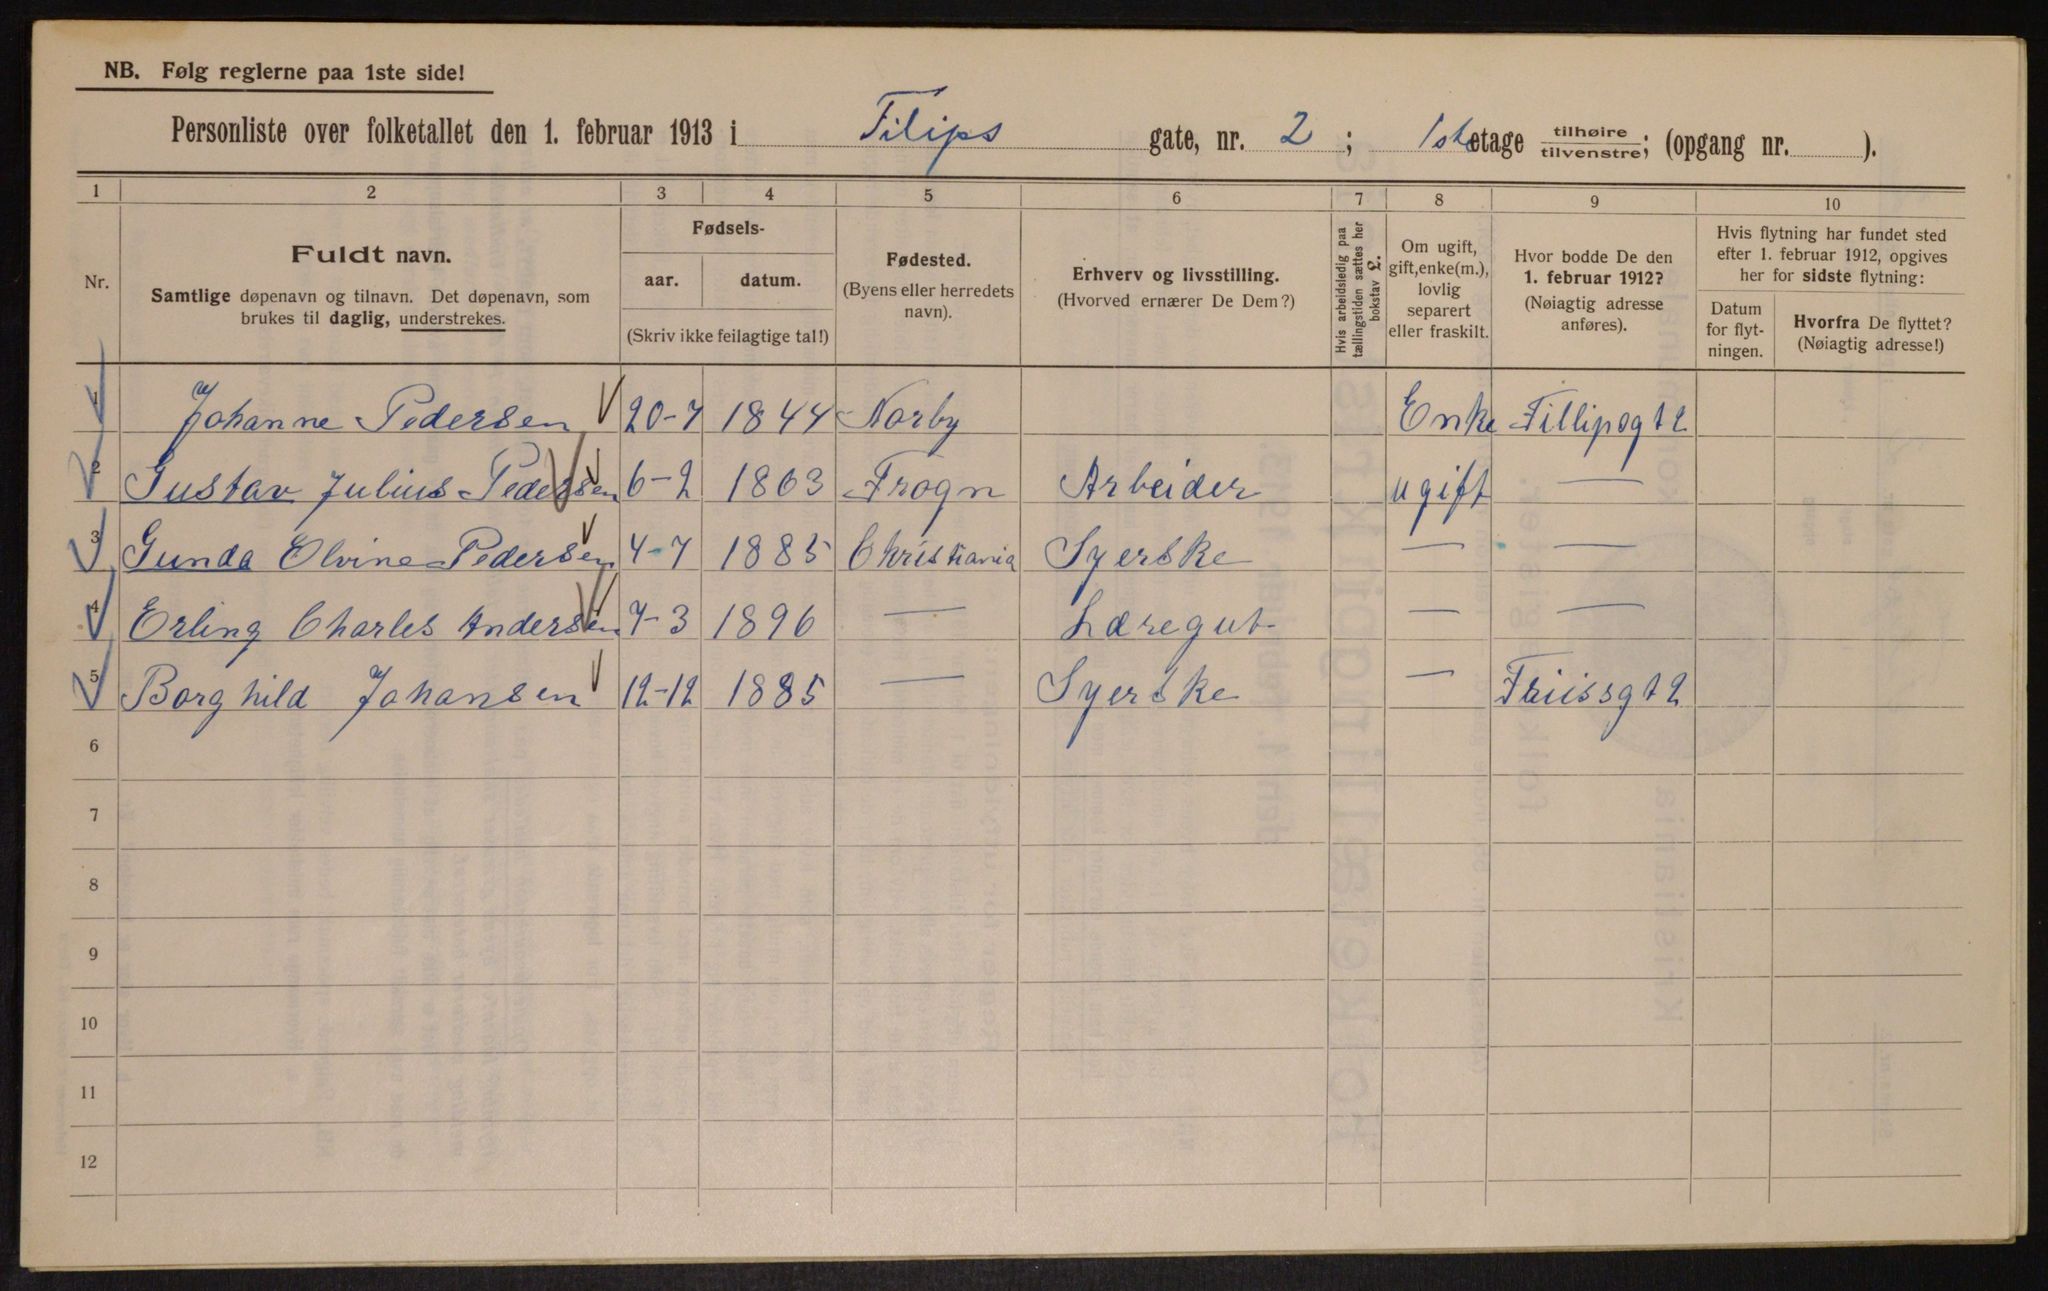 NB. Følg reglerne paa 1ste side!
Personliste over folketallet den 1. februar 1913 i Filips gate, nr. 2 ; 1ste etage tilhøire/tilvenstre; (opgang nr. ).
1 2 3 4 5 6 7 8 9 10
Nr.
Fuldt navn.
Samtlige døpenavn og tilnavn. Det døpenavn, som
brukes til daglig, understrekes.
Fødsels-
aar. datum.
(Skriv ikke feilagtige tal!)
Fødested.
(Byens eller herredets
navn).
Erhverv og livsstilling.
(Hvorved ernærer De Dem?)
Hvis arbeidsledig paa
tællingstiden sættes her
bokstav £.
Om ugift,
gift, enke(m.),
lovlig
separert
eller fraskilt.
Hvor bodde De den
1. februar 1912?
(Nøiagtig adresse
anføres).
Hvis flytning har fundet sted
efter 1. februar 1912, opgives
her for sidste flytning:
Datum
for flyt-
ningen.
Hvorfra De flyttet?
(Nøiagtig adresse!)
1 Johanne Pedersen 20-7 1844 Norby Enke Fillipsgt 2
2 Gustav Julius Pedersen 6-2 1863 Frogn Arbeider ugift —
3 Gunda Olvine Pedersen 4-7 1885 Christiania Syerske — —
4 Erling Charles Andersen 7-3 1896 — Læregut — —
5 Borghild Johansen 12-12 1885 — Syerske — Friissgt 2
6
7
8
9
10
11
12